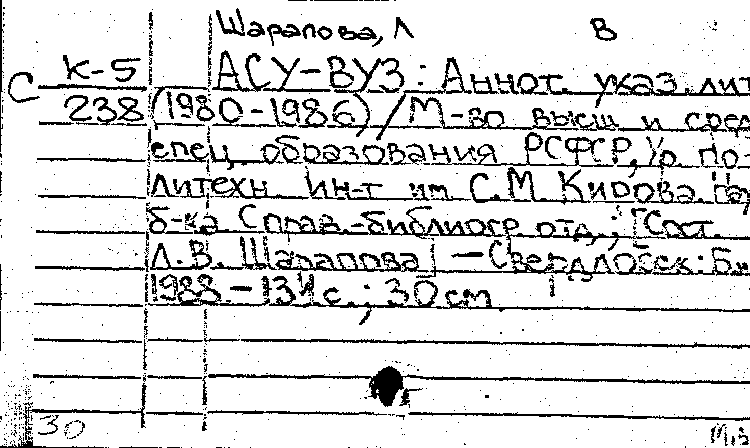 Шарапова, Л В
К-5 АСУ-ВУЗ: Аннот. указ. лит
С
238 (1980-1986) / М-во высш и сред
спец. образования РСФСР, Ур. по-
литехн. ин-т им С.М. Кирова.
б-ка Справ.-библиогр отд.; [Сост.
Л.В. Шарапова] — Свердловск: Б.и
1988 — 131 с.; 30 см
30